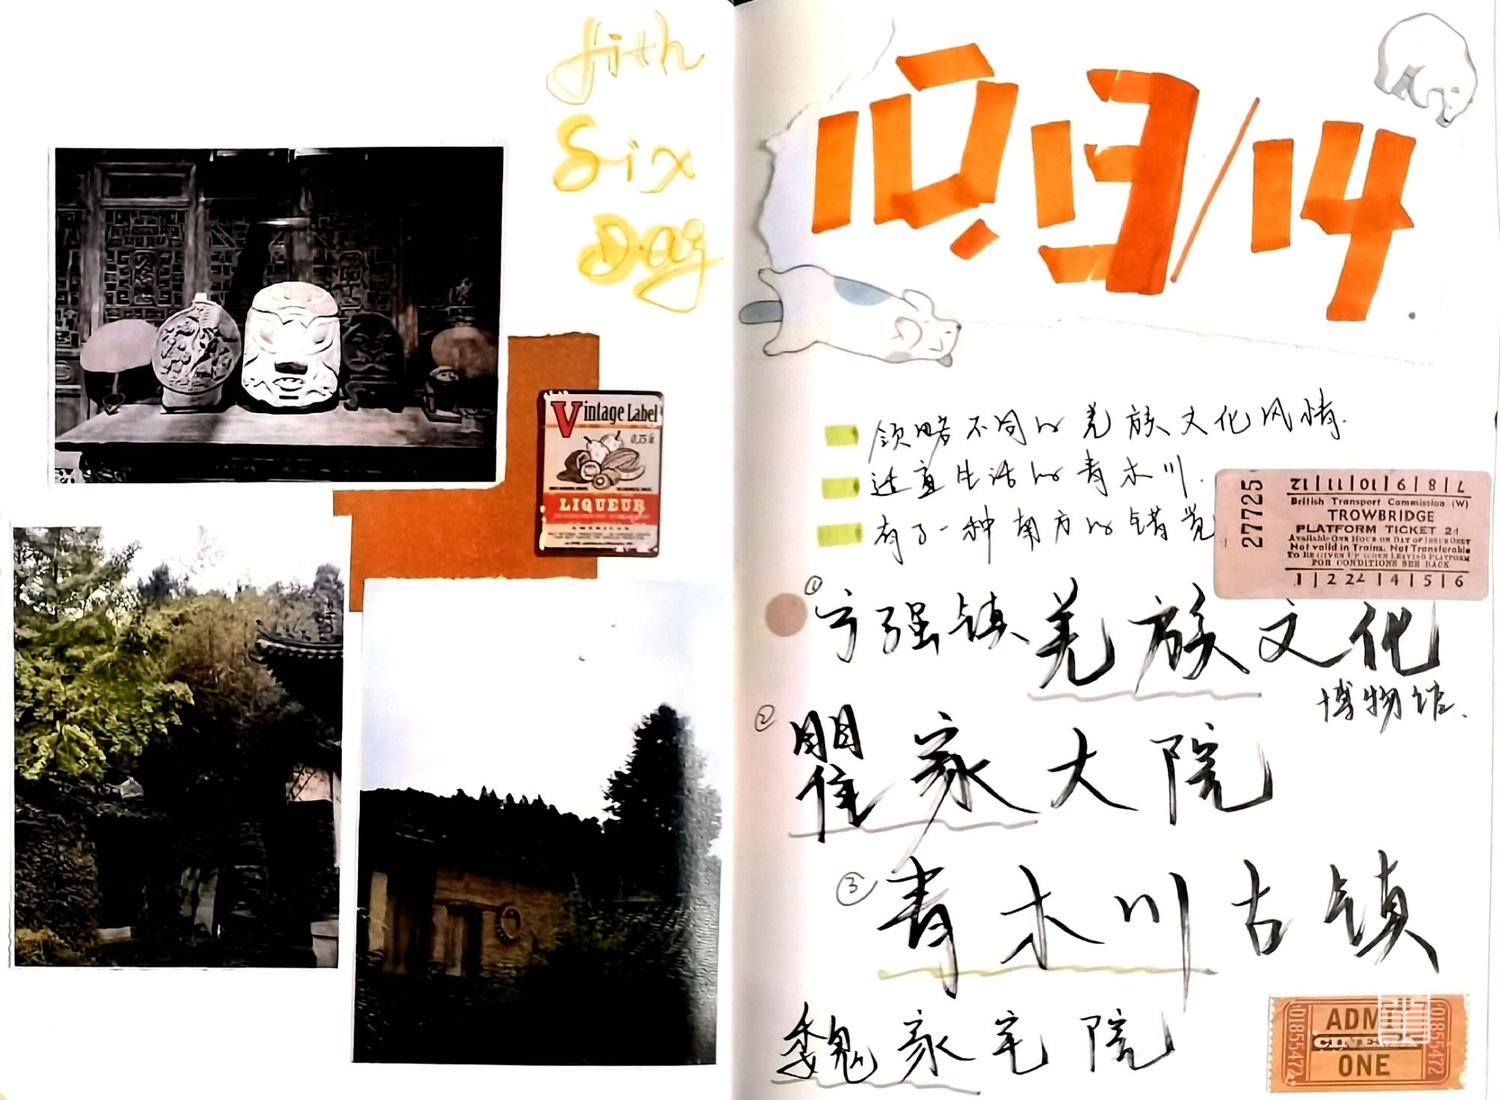 fith
Six
Day
Vintage Label
0,75 lt
LIQUEUR
AMERICAN
10.13/14
领略不同的羌族文化风情.
适宜生活的青木川.
有了一种南方的错觉
27725
12|11|10|9|8|7
British Transport Commission (W)
TROWBRIDGE
PLATFORM TICKET 2d
Available ONE HOUR ON DAY OF ISSUE ONLY
Not valid in Trains. Not Transferable
TO BE GIVEN UP WHEN LEAVING PLATFORM
FOR CONDITIONS SEE BACK
1|2|4|5|6
① 宁强镇羌族文化
博物馆.
② 瞿家大院
③ 青木川古镇
魏家宅院
ADMIT
ONE
0185547
0185547